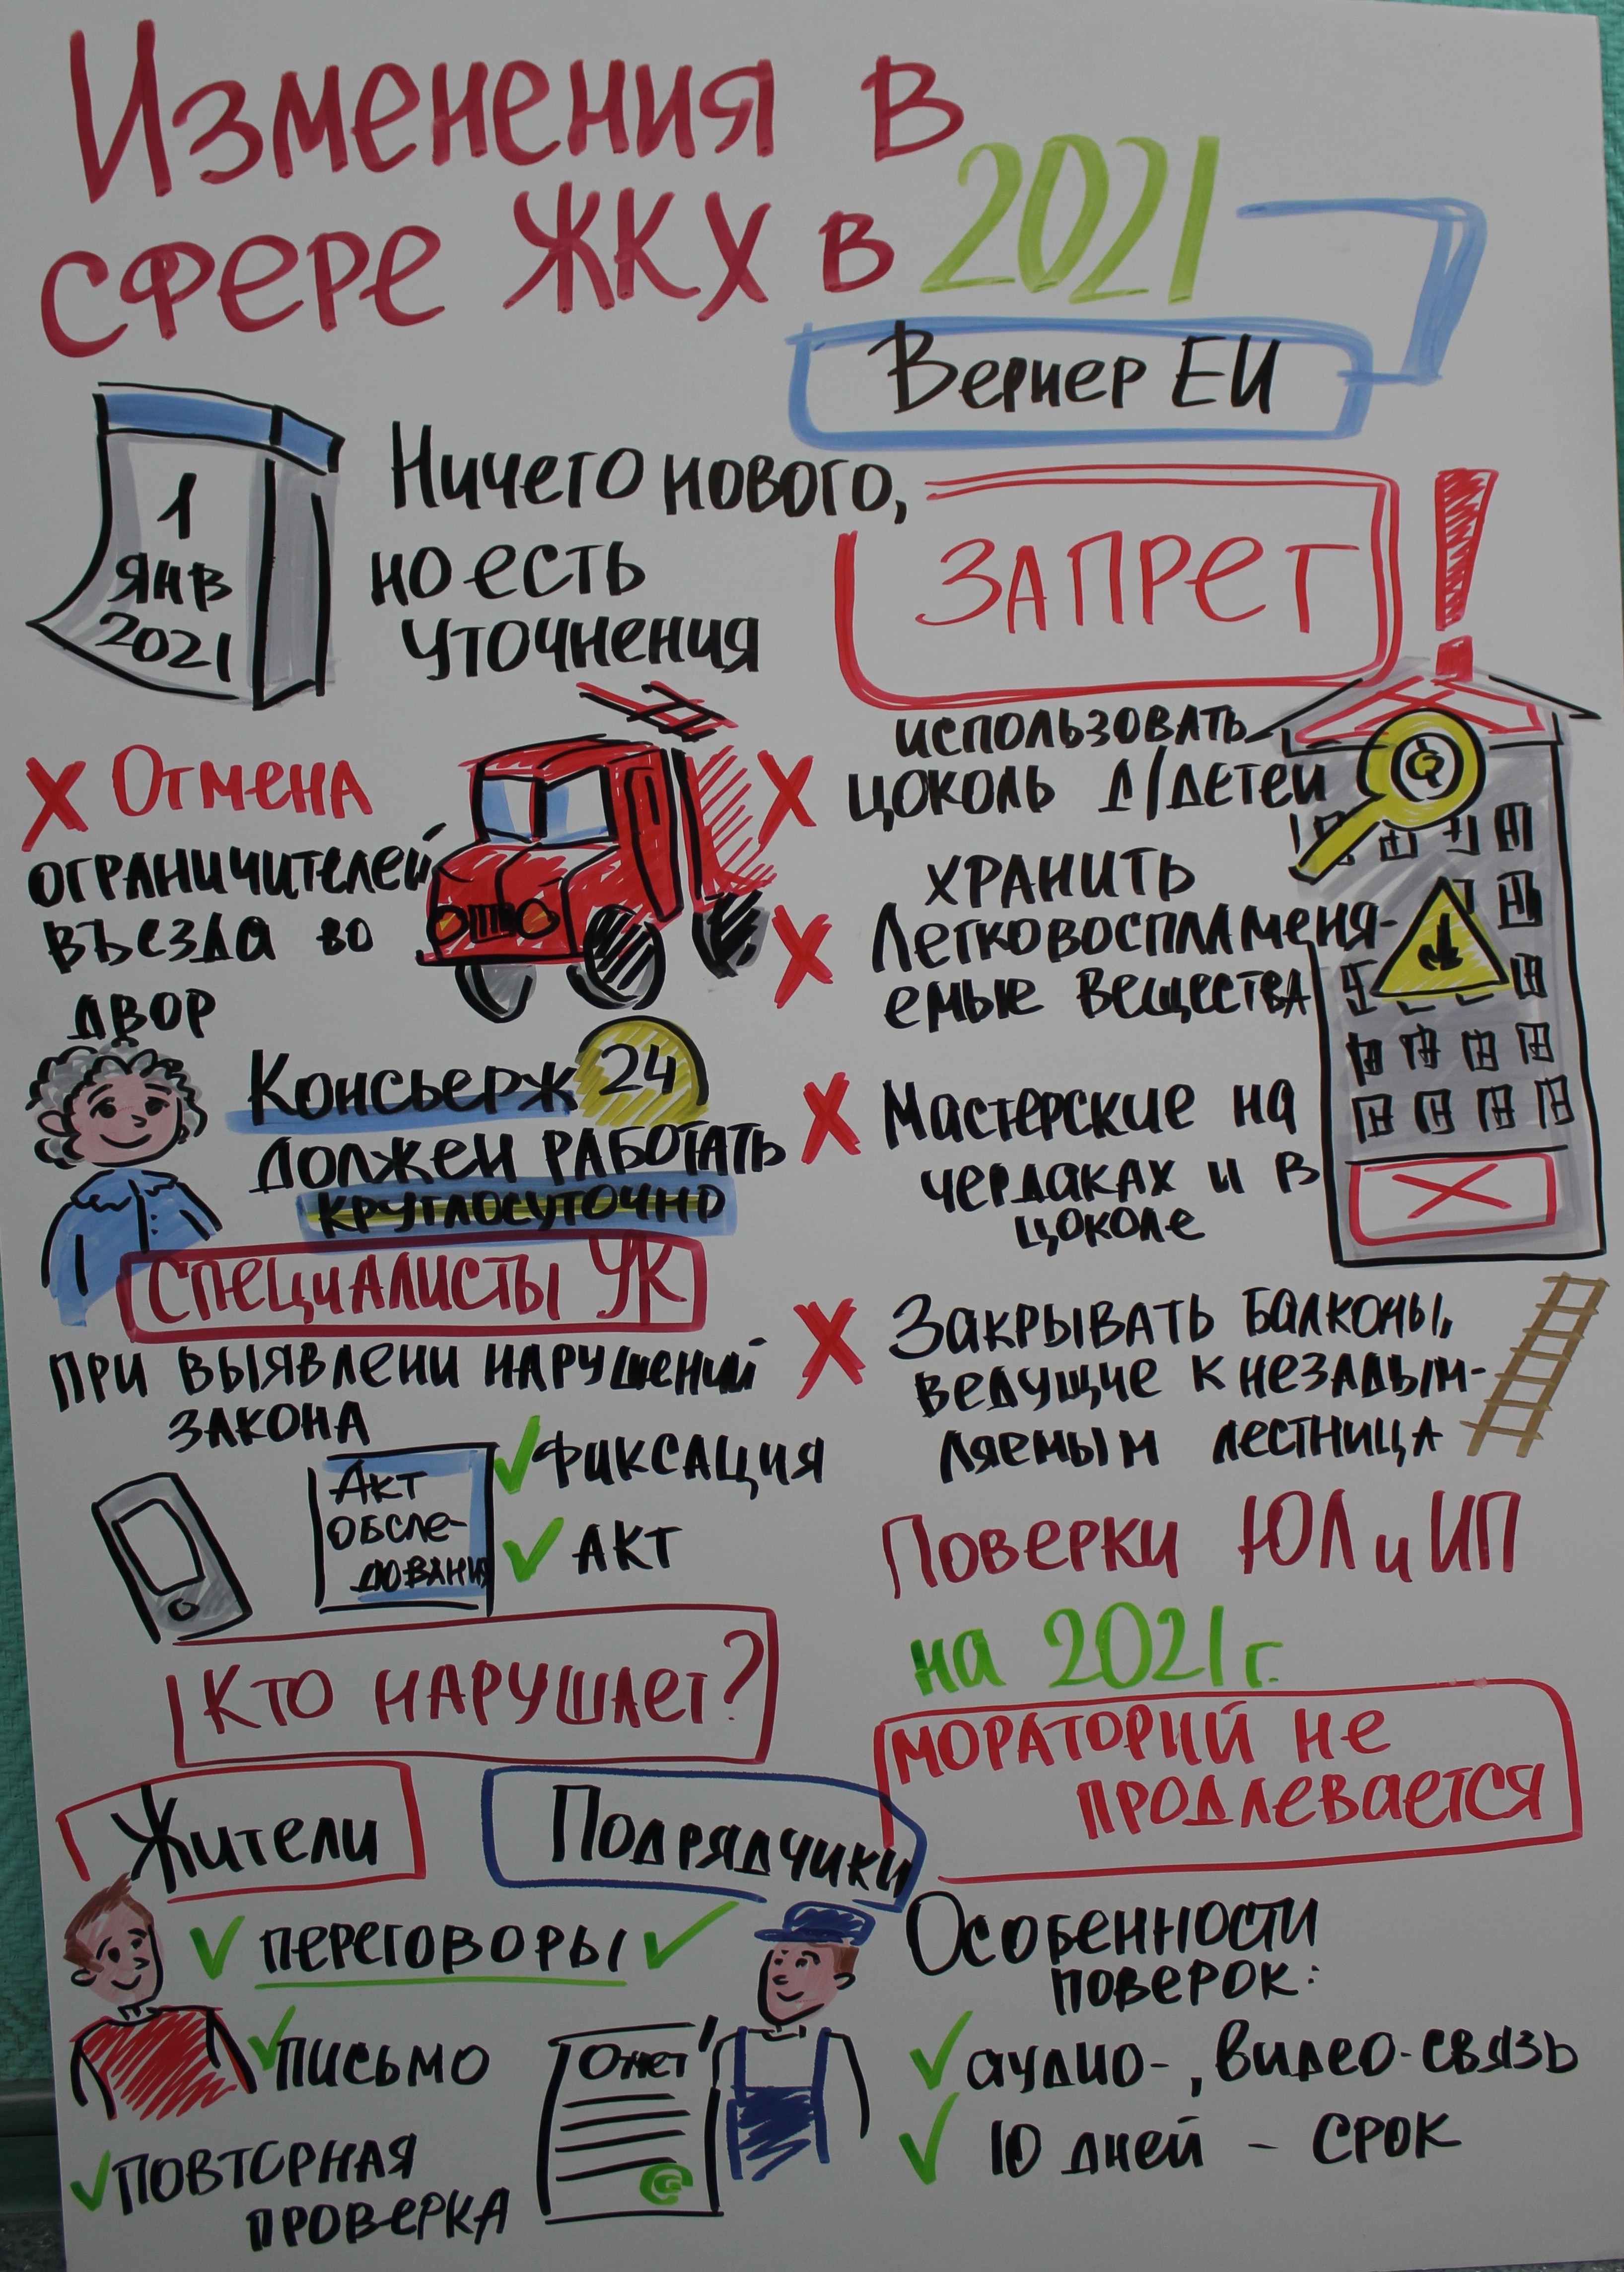 Изменения в
сфере ЖКХ в 2021
Вернер ЕИ
1
янв
2021
Ничего нового,
но есть
уточнения
Отмена
ограничителей
въезда во
двор
Консьерж 24
должен работать
круглосуточно
Специалисты УК
при выявлени нарушений
закона
Акт
обсле-
дования
фиксация
акт
Кто нарушает?
Жители
Подрядчики
переговоры
письмо
Отчет
повторная
проверка
Запрет
использовать
цоколь д/детей
хранить
легковоспламеня-
емые вещества
Мастерские на
чердаках и в
цоколе
Закрывать балконы,
ведущие к незадым-
ляемым лестница
Поверки ЮЛ и ИП
на 2021 г.
мораторий не
продлевается
Особенности
поверок:
аудио-, видео-связь
10 дней - срок